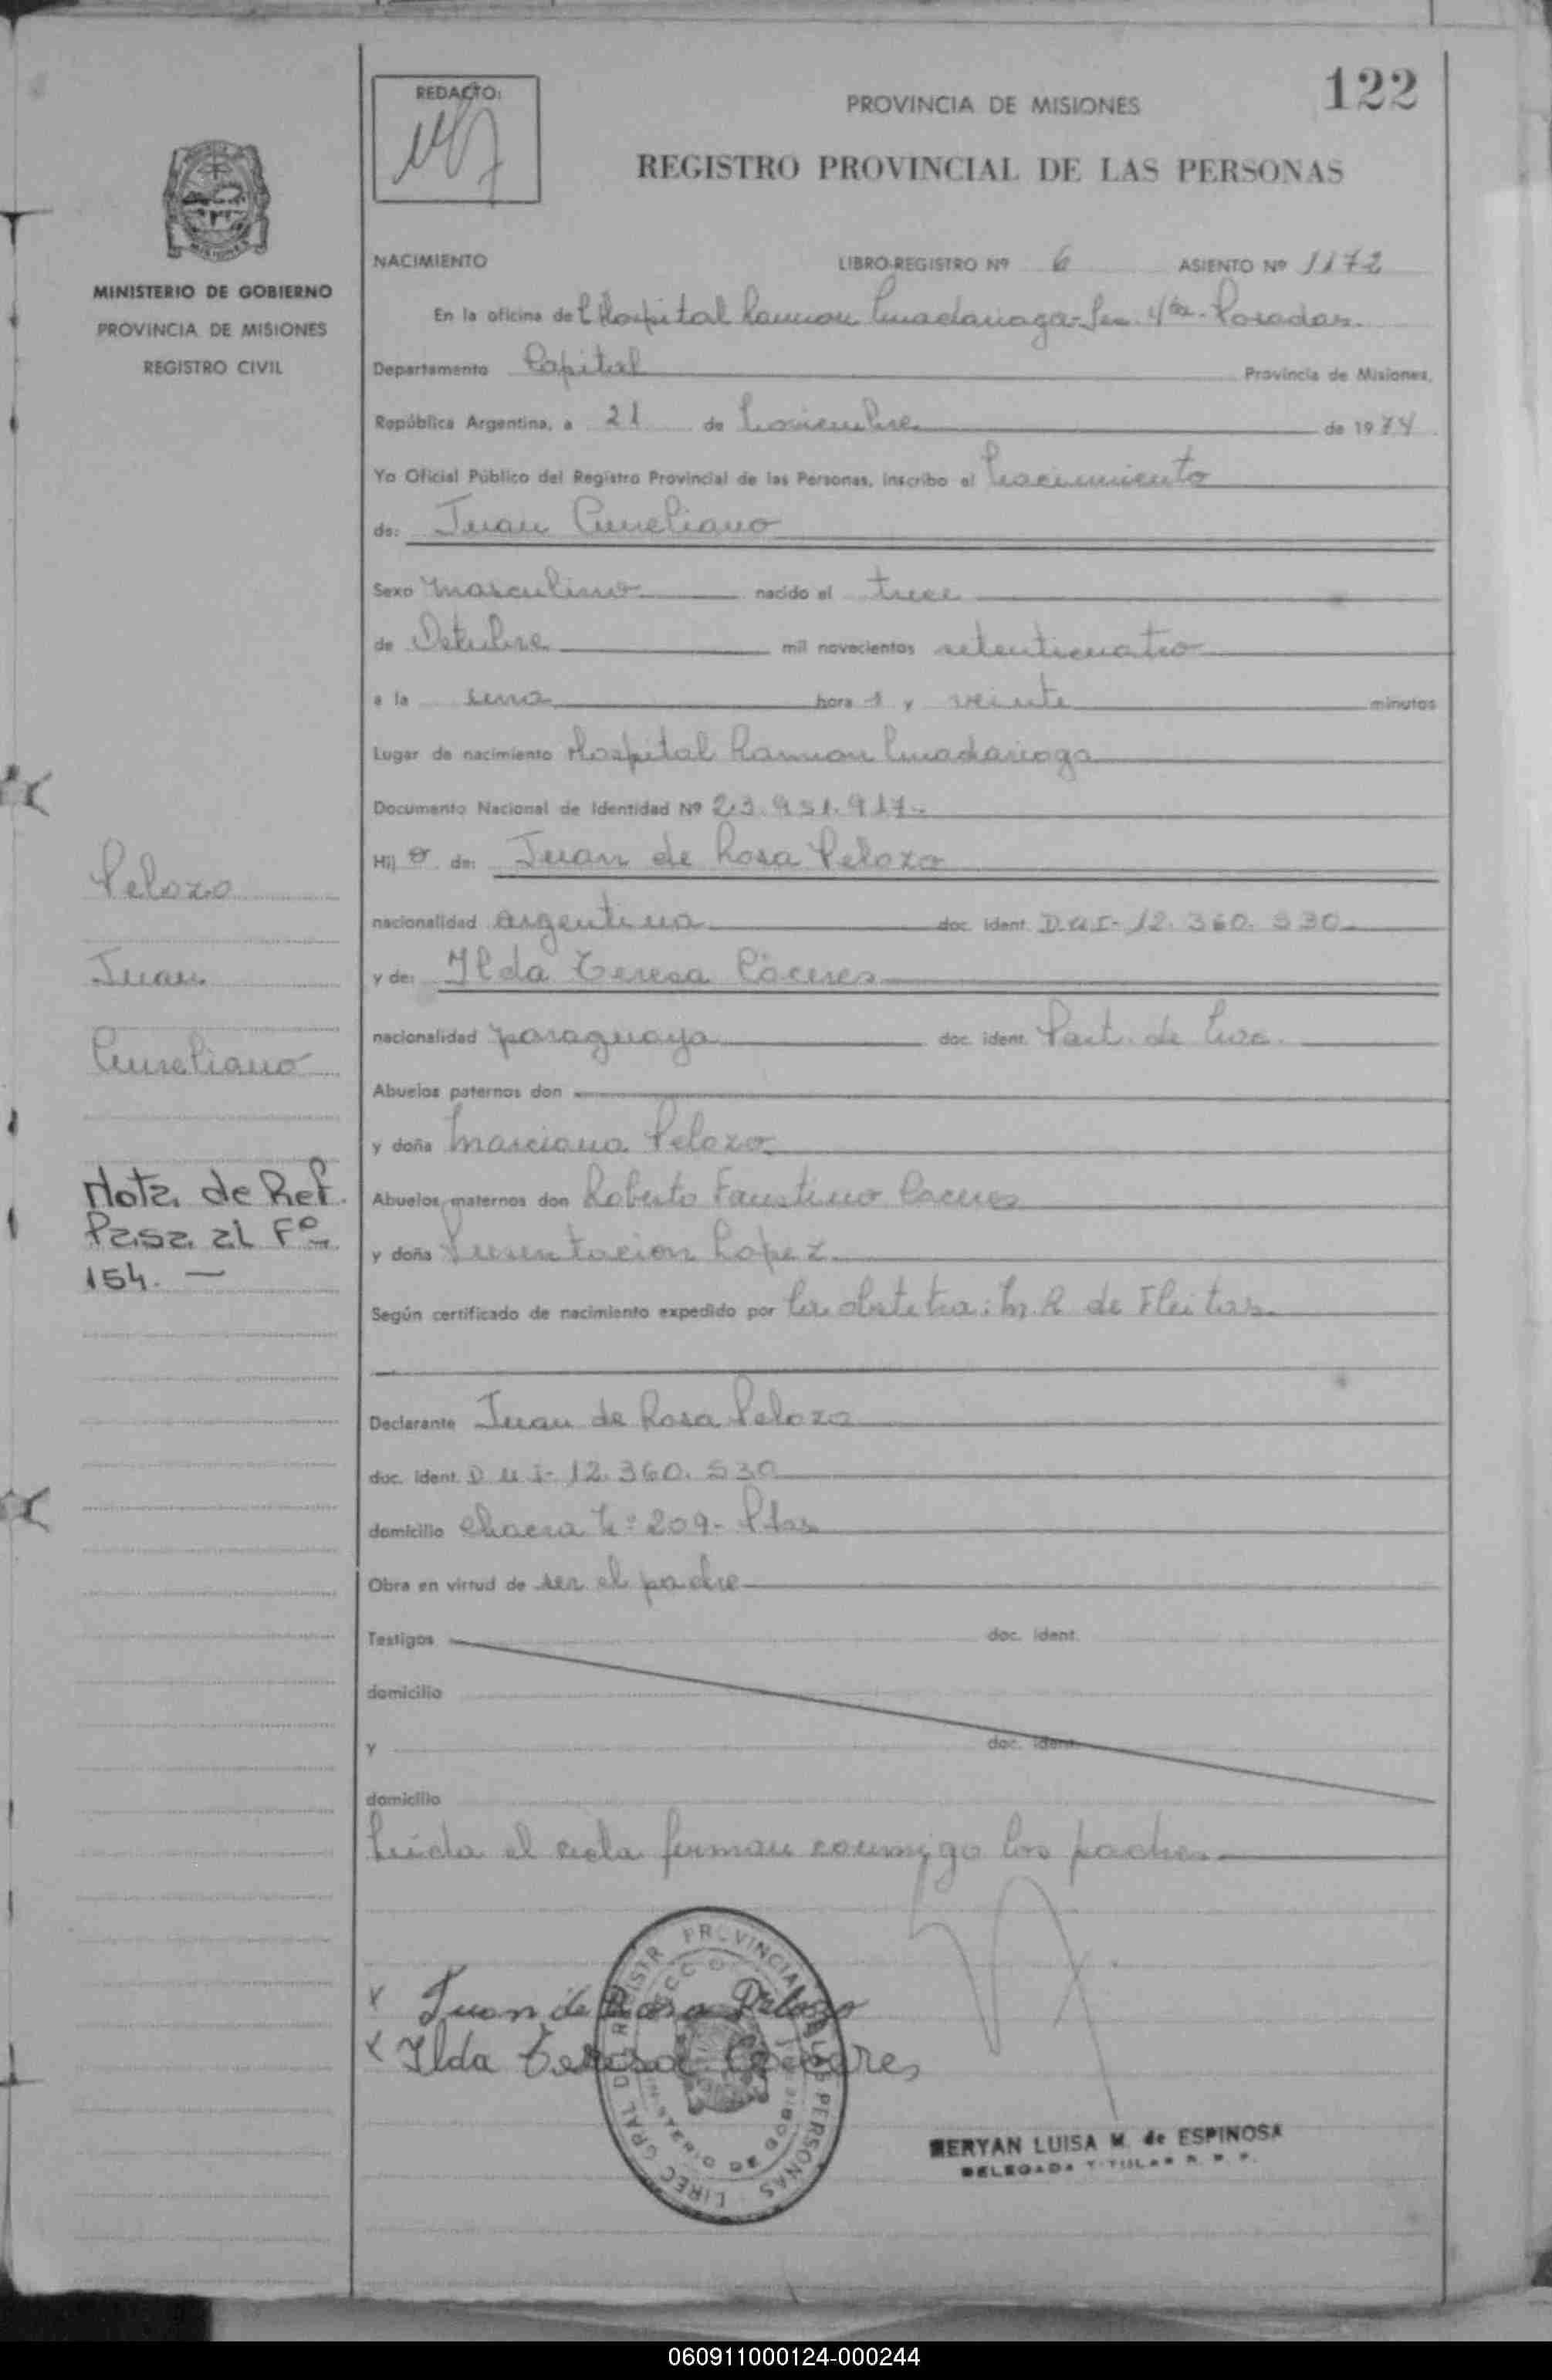 122
REDACTO:
PROVINCIA DE MISIONES
REGISTRO PROVINCIAL DE LAS PERSONAS
MISIONES
MINISTERIO DE GOBIERNO
PROVINCIA DE MISIONES
REGISTRO CIVIL
NACIMIENTO LIBRO-REGISTRO Nº 6 ASIENTO Nº 1172
En la oficina del Hospital Ramon Madariaga - Sec. 4ta. Posadas.
Departamento Capital Provincia de Misiones,
República Argentina, a 21 de Noviembre de 1974
Yo Oficial Público del Registro Provincial de las Personas, inscribo el Nacimiento
de: Juan Aureliano
Sexo Masculino nacido el trece
de Octubre mil novecientos setenticuatro
a la una hora 1 y veinte minutos
Lugar de nacimiento Hospital Ramon Madariaga
Documento Nacional de Identidad Nº 23.951.917.
Hijo de: Juan de Rosa Pelozo
nacionalidad argentina doc. ident. D.U.I- 12.360.530.
y de: Ilda Teresa Cáceres
nacionalidad paraguaya doc. ident. Part. de Nac.
Abuelos paternos don
y doña Marciana Pelozo.
Abuelos maternos don Roberto Faustino Caceres
y doña Presentacion Lopez.
Según certificado de nacimiento expedido por la obstetra: M. R de Fleitas.
Declarante Juan de Rosa Pelozo
doc. ident. D U I- 12.360.530
domicilio Chacra Nº 209- Pdas
Obra en virtud de ser el padre
Testigos doc. ident.
domicilio
y doc. ident.
domicilio
Leída el acta firman conmigo los padres
Pelozo
Juan
Aureliano
Nota de Ref.
Pasa al Fº
154. —
x Juan de Rosa Pelozo
x Ilda Teresa Caceres
MERYAN LUISA M. de ESPINOSA
DELEGADA TITULAR R. P. P.
060911000124-000244